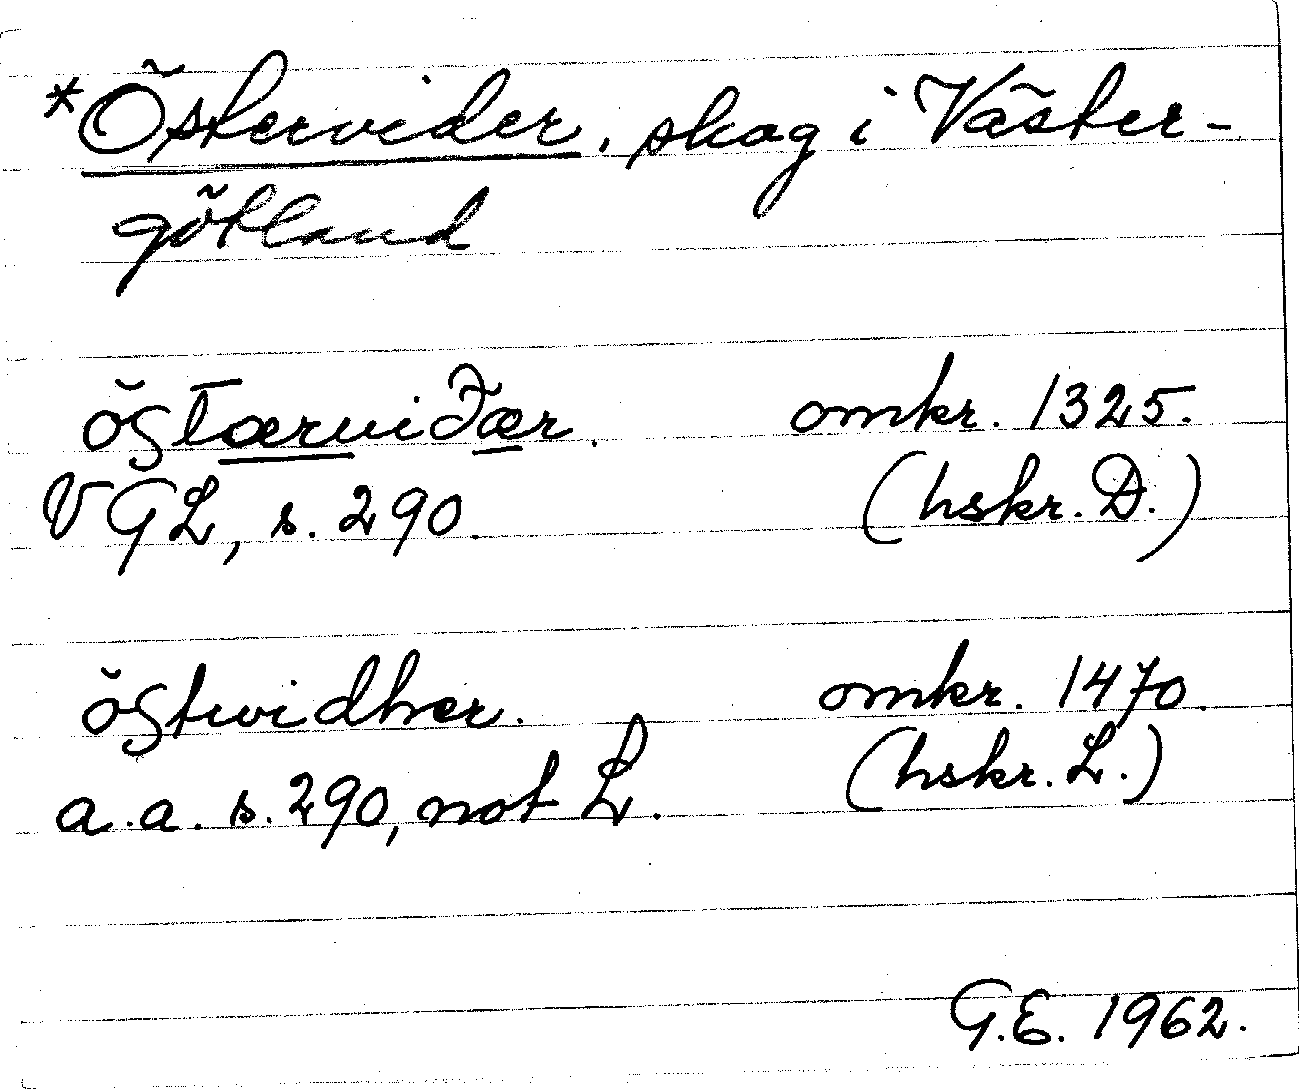 *Östervider, skog i Väster-
götland
östærviðær. omkr. 1325.
VGL, s. 290. (hskr. D.)
östwidher. omkr. 1470.
a.a. s. 290, not L. (hskr. L.)
G.E. 1962.